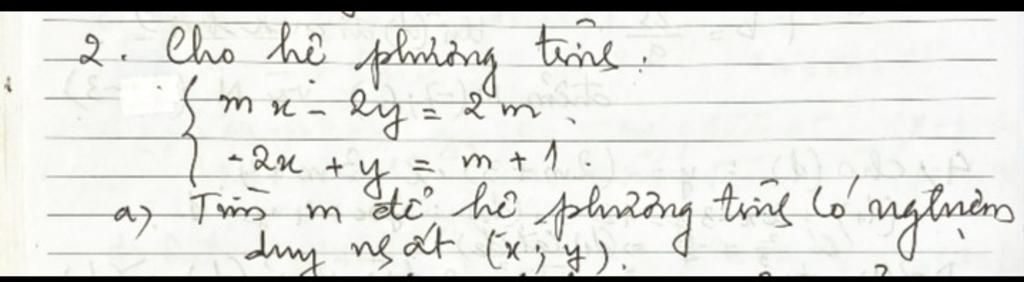 2. Cho hệ phương trình.
{ mx - 2y = 2m.
-2x + y = m + 1.
a) Tìm m để hệ phương trình có nghiệm
duy nhất (x; y).